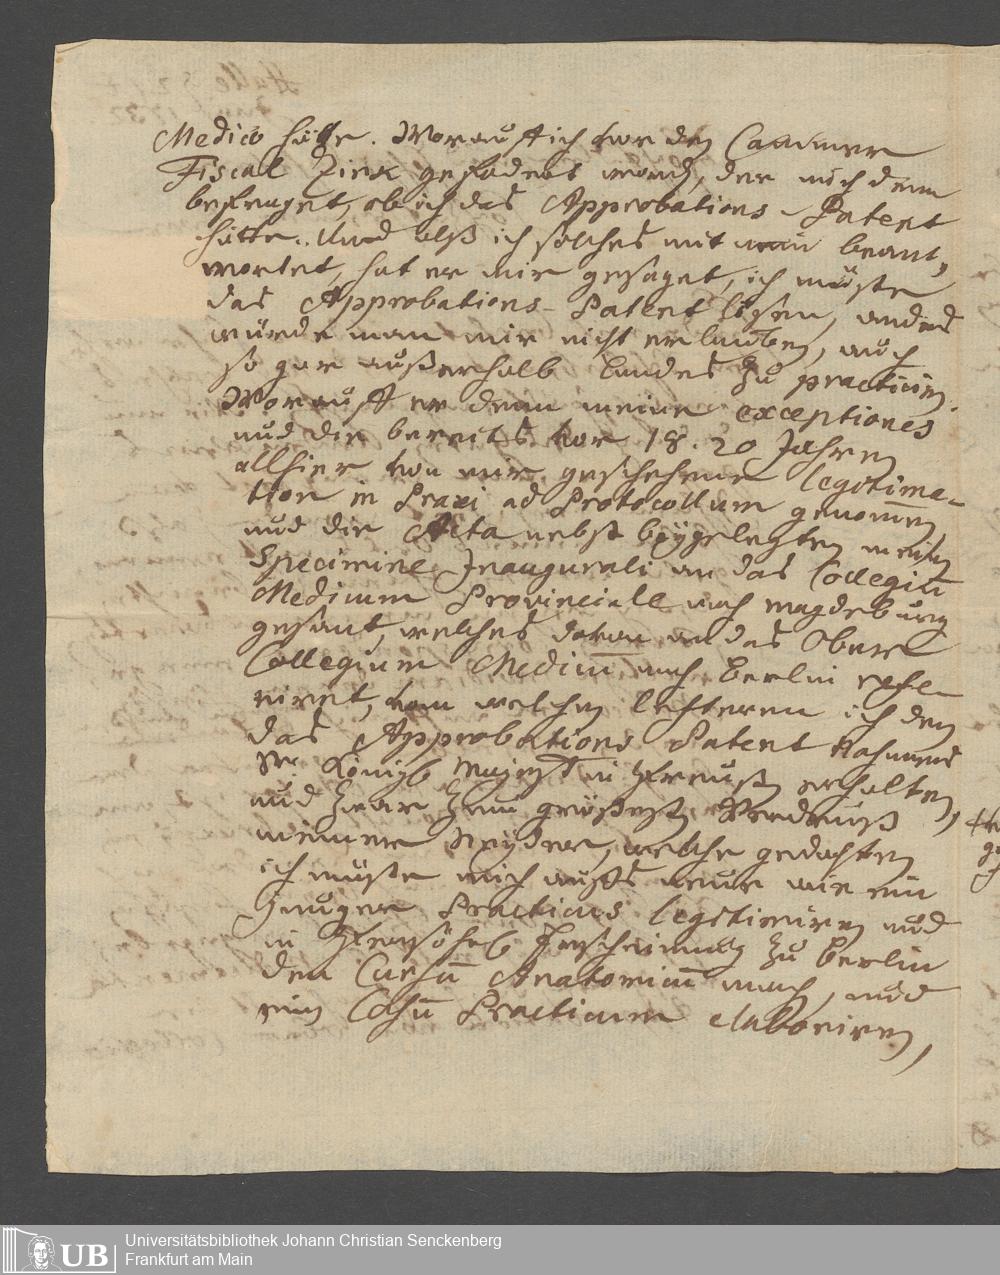 Medico hätte. Worauf ich vor den Cammer
Fiscal gefodert word, der mich denn
befraget, ob ich das Approbations-Patent
hätte. Und alß ich solches mit nein beant,
wortet, hat er mir gesaget, ich müste
das Approbations-Patent lösen, anders
würde man mir nicht erlauben, auch
so gar außerhalb Landes zu practiciren.
Worauf er denn meine exceptiones
und die bereits vor 18. 20 Jahren
allhier von mir geschehene legitima-
tion in Praxi ad Protocollum genommen
und die Acta nebst beygelegten meinen
Specimine Inaugurali an das Collegium
Medicum Provinciale nach Magdeburg
gesant, welches davon an das Ober
Collegium Medicum nach Berlin refe-
riret, von welchen letzteren ich den
das Approbations Patent Nahmens
Sr. Königl Majest in Preußen erhalten,
und zwar zum grösesten Verdruß
meiner Neyder, welche gedachten
ich müste mich aufs neue wie ein
junger Practicus legitimiren und
in Persöhnl Erscheinung zu Berlin
den Cursum Anatomicum mach, und
ein Casum Practicum elaboriren,
UB
Universitätsbibliothek Johann Christian Senckenberg
Frankfurt am Main